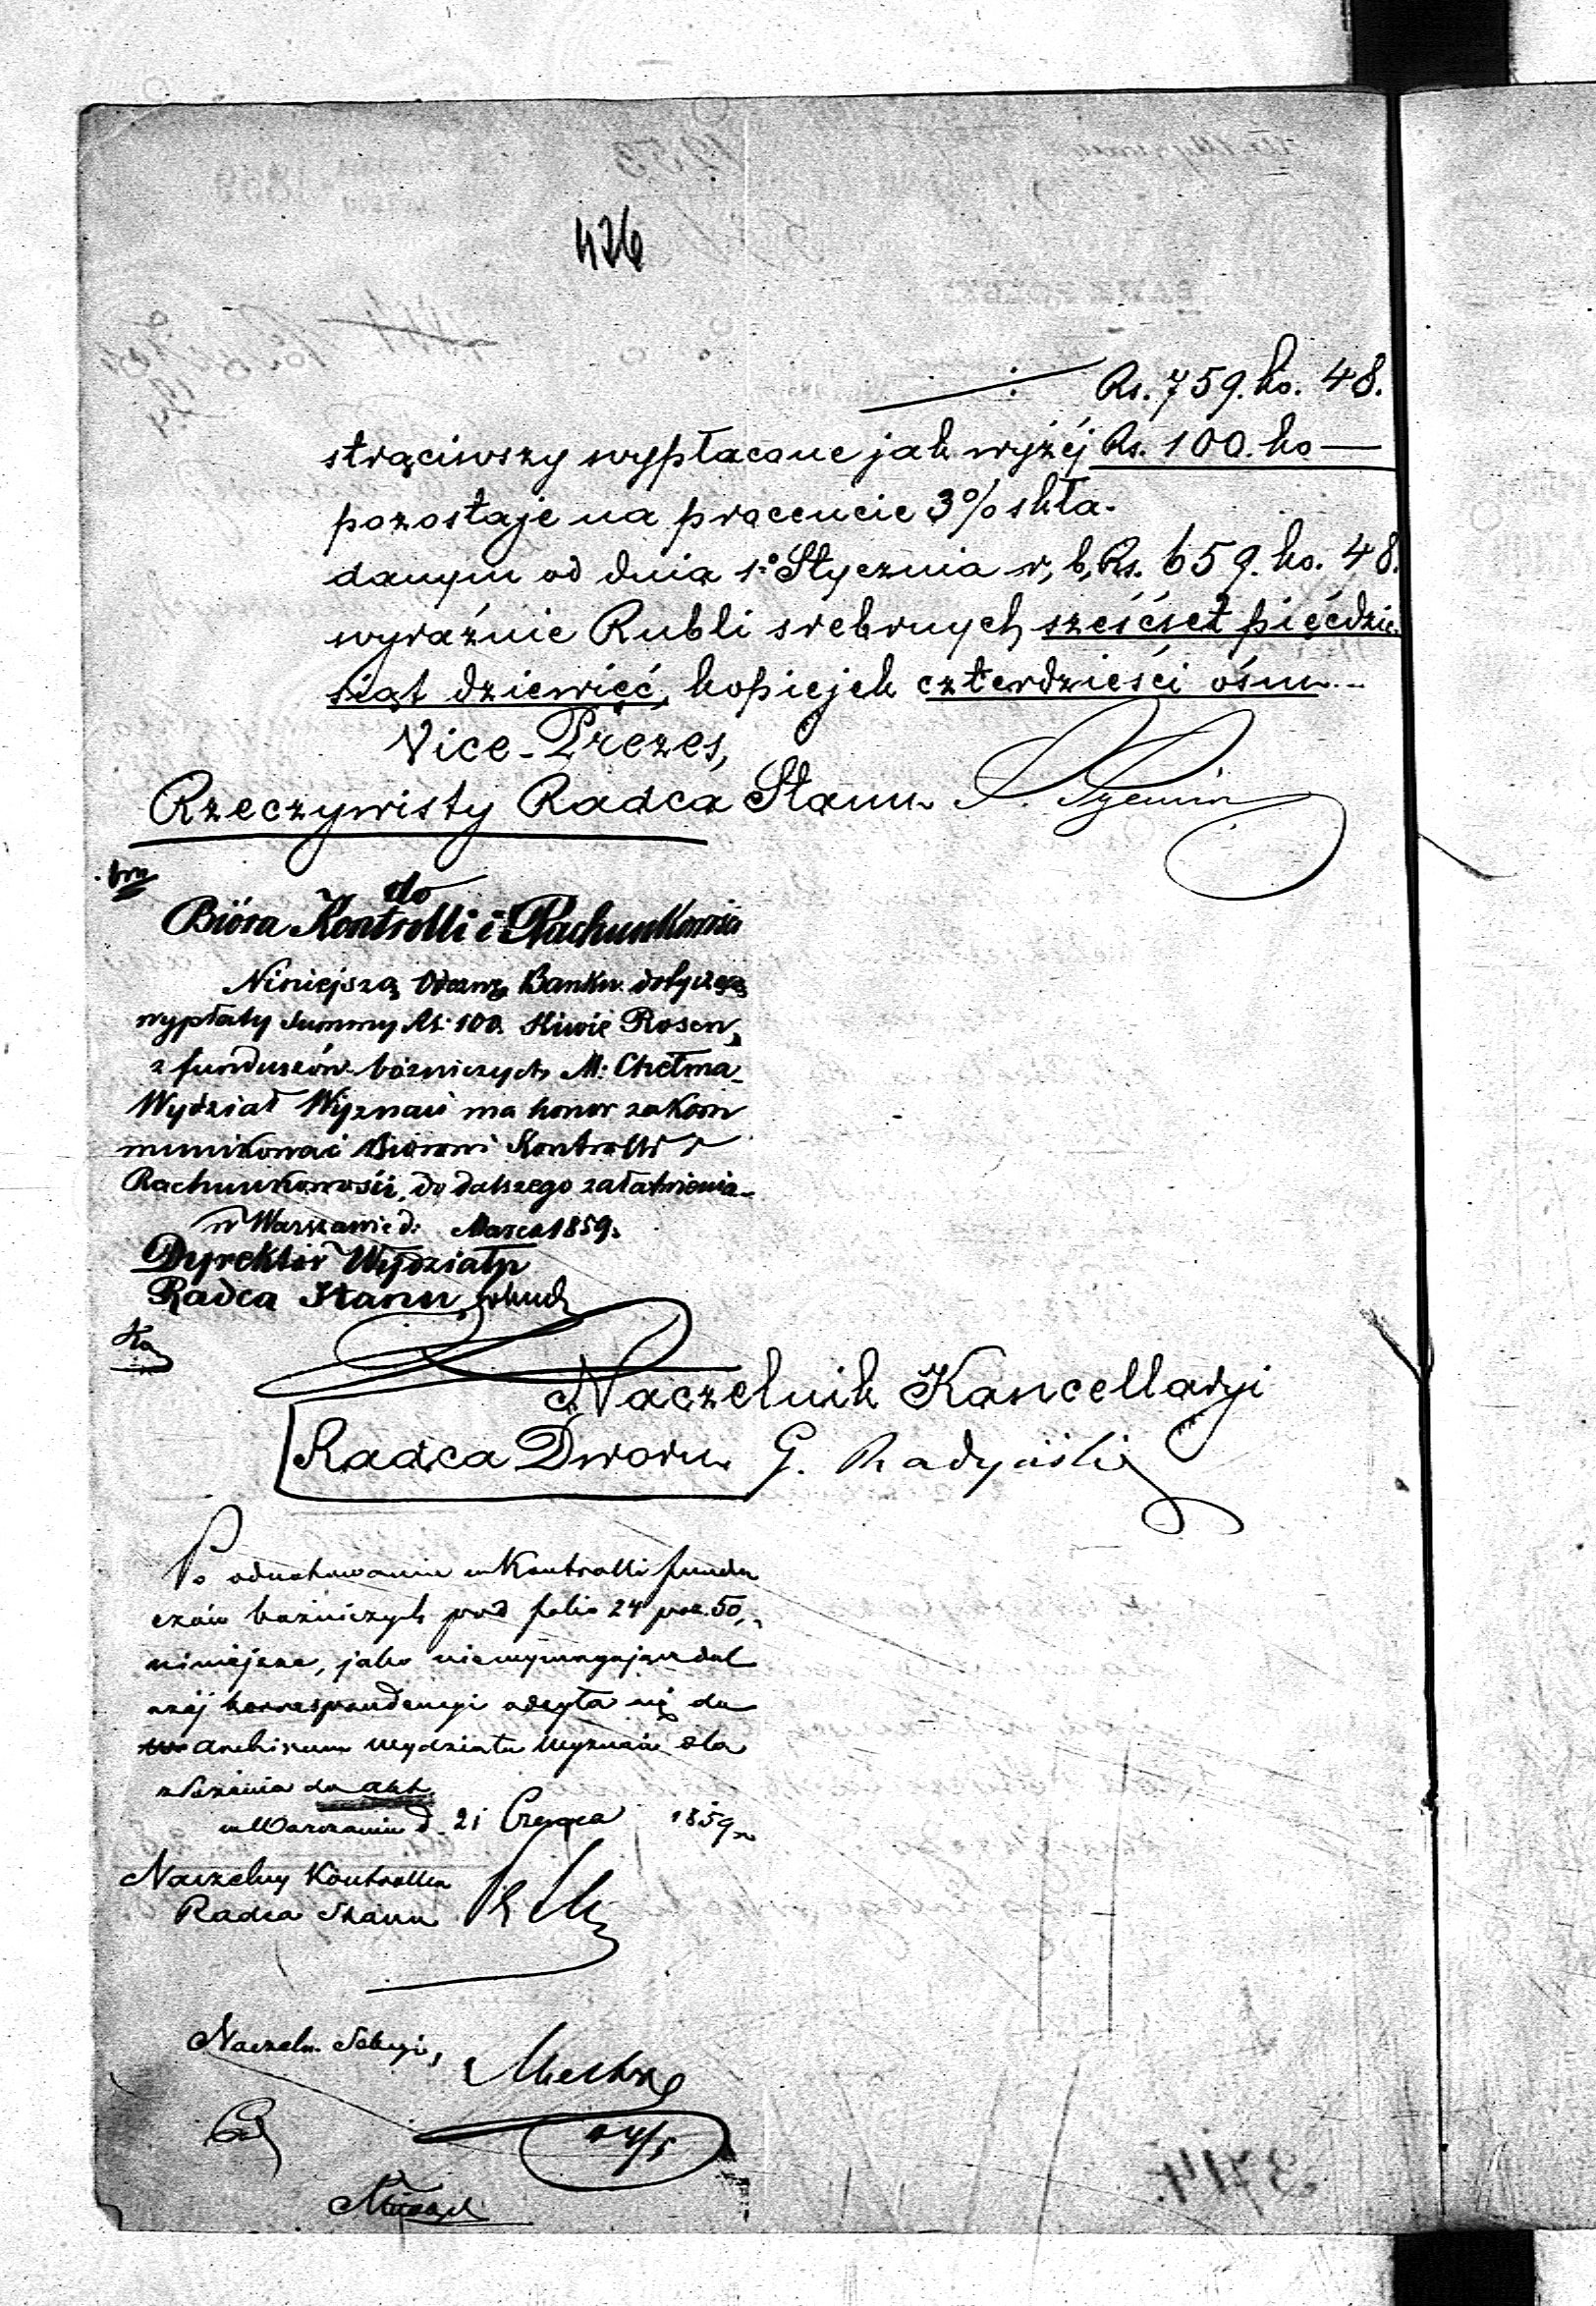 426
Rs. 759. ko. 48.
strąciwszy wypłacone jak wyżéj Rs. 100. ko —
pozostaje na procencie 3% skła-
danym od dnia 1º Stycznia r, b, Rs. 659. ko. 48.
wyraźnie Rubli srebrnych sześćset pięćdzie-
siąt dziewięć, kopiejek czterdzieści ośm.
Vice-Prezes,
Rzeczywisty Radca Stanu
do
Bióra Kontrolli i Rachunkowości
Niniejszą Odezwę Banku dotyczącą
wypłaty Summy Rs. 100. Hiwie Rosen,
z funduszów bóżniczych M: Chełma
Wydział Wyznań ma honor zakom
munikować Biórowi Kontrolli i
Rachunkowości, do dalszego załatwienia.
w Warszawie d: Marca 1859.
Dyrektor Wydziału
Radca Stanu
Naczelnik Kancellaryi
Radca Dworu G. Radyński
Po odnotowaniu w Kontrolli fundu
szów bożniczych pod folio 24 poz. 50,
niniejsze, jako niewymagające dal
széj korrespondencyi odsyła się do
Archiwum Wydziału Wyznań dla
złożenia do akt
w Warszawie d. 21 Czerwca 1859
Naczelny Kontroller
Radca Stanu
Naczeln. Sekcyi,